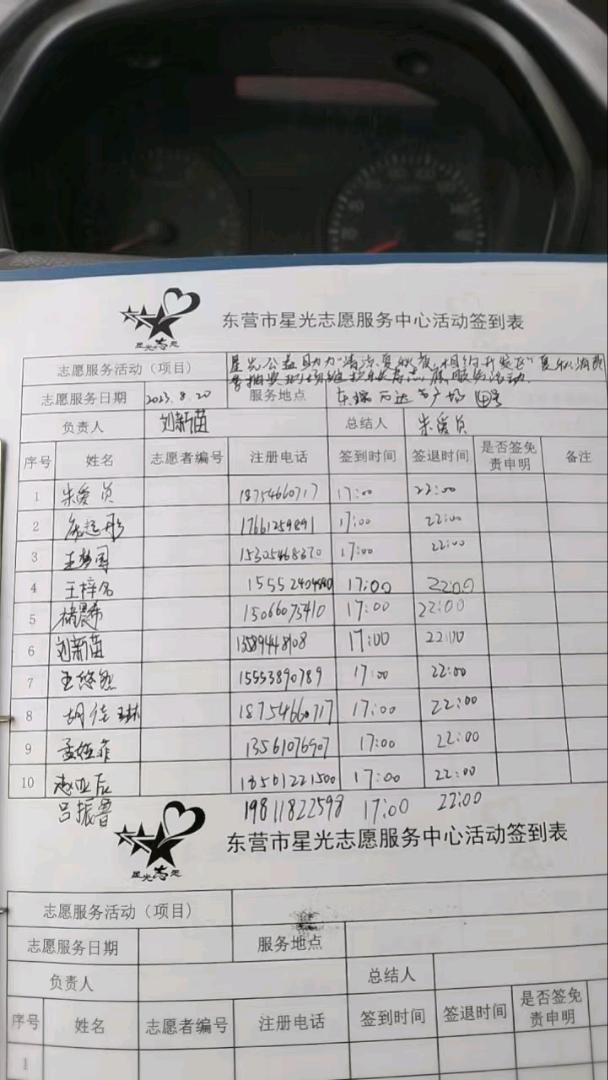 星光志愿
东营市星光志愿服务中心活动签到表
志愿服务活动（项目） 星光公益助力"清凉夏欢夜,相约开发飞"夏欢消费
志愿服务日期 2023.8.20 服务地点 东瑞万达广场
负责人 刘新苗 总结人 朱爱贞
序号 姓名 志愿者编号 注册电话 签到时间 签退时间 是否签免责申明 备注
1 朱爱贞 18754660717 17:00 22:00
2 17661259891 17:00 22:00
3 王梦园 15305468370 17:00 22:00
4 王梓名 17:00 22:00
5 15066073410 17:00 22:00
6 刘新苗 17:00 22:00
7 王悠然 15553890789 17:00 22:00
8 胡佳琳 18754660717 17:00 22:00
9 13561076907 17:00 22:00
10 赵亚辰 17:00 22:00
吕振鲁 19811822598 17:00 22:00
星光志愿
东营市星光志愿服务中心活动签到表
志愿服务活动（项目）
志愿服务日期 服务地点
负责人 总结人
序号 姓名 志愿者编号 注册电话 签到时间 签退时间 是否签免责申明
1